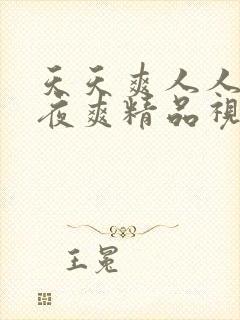 天天爽人人
夜爽精品視
王冕